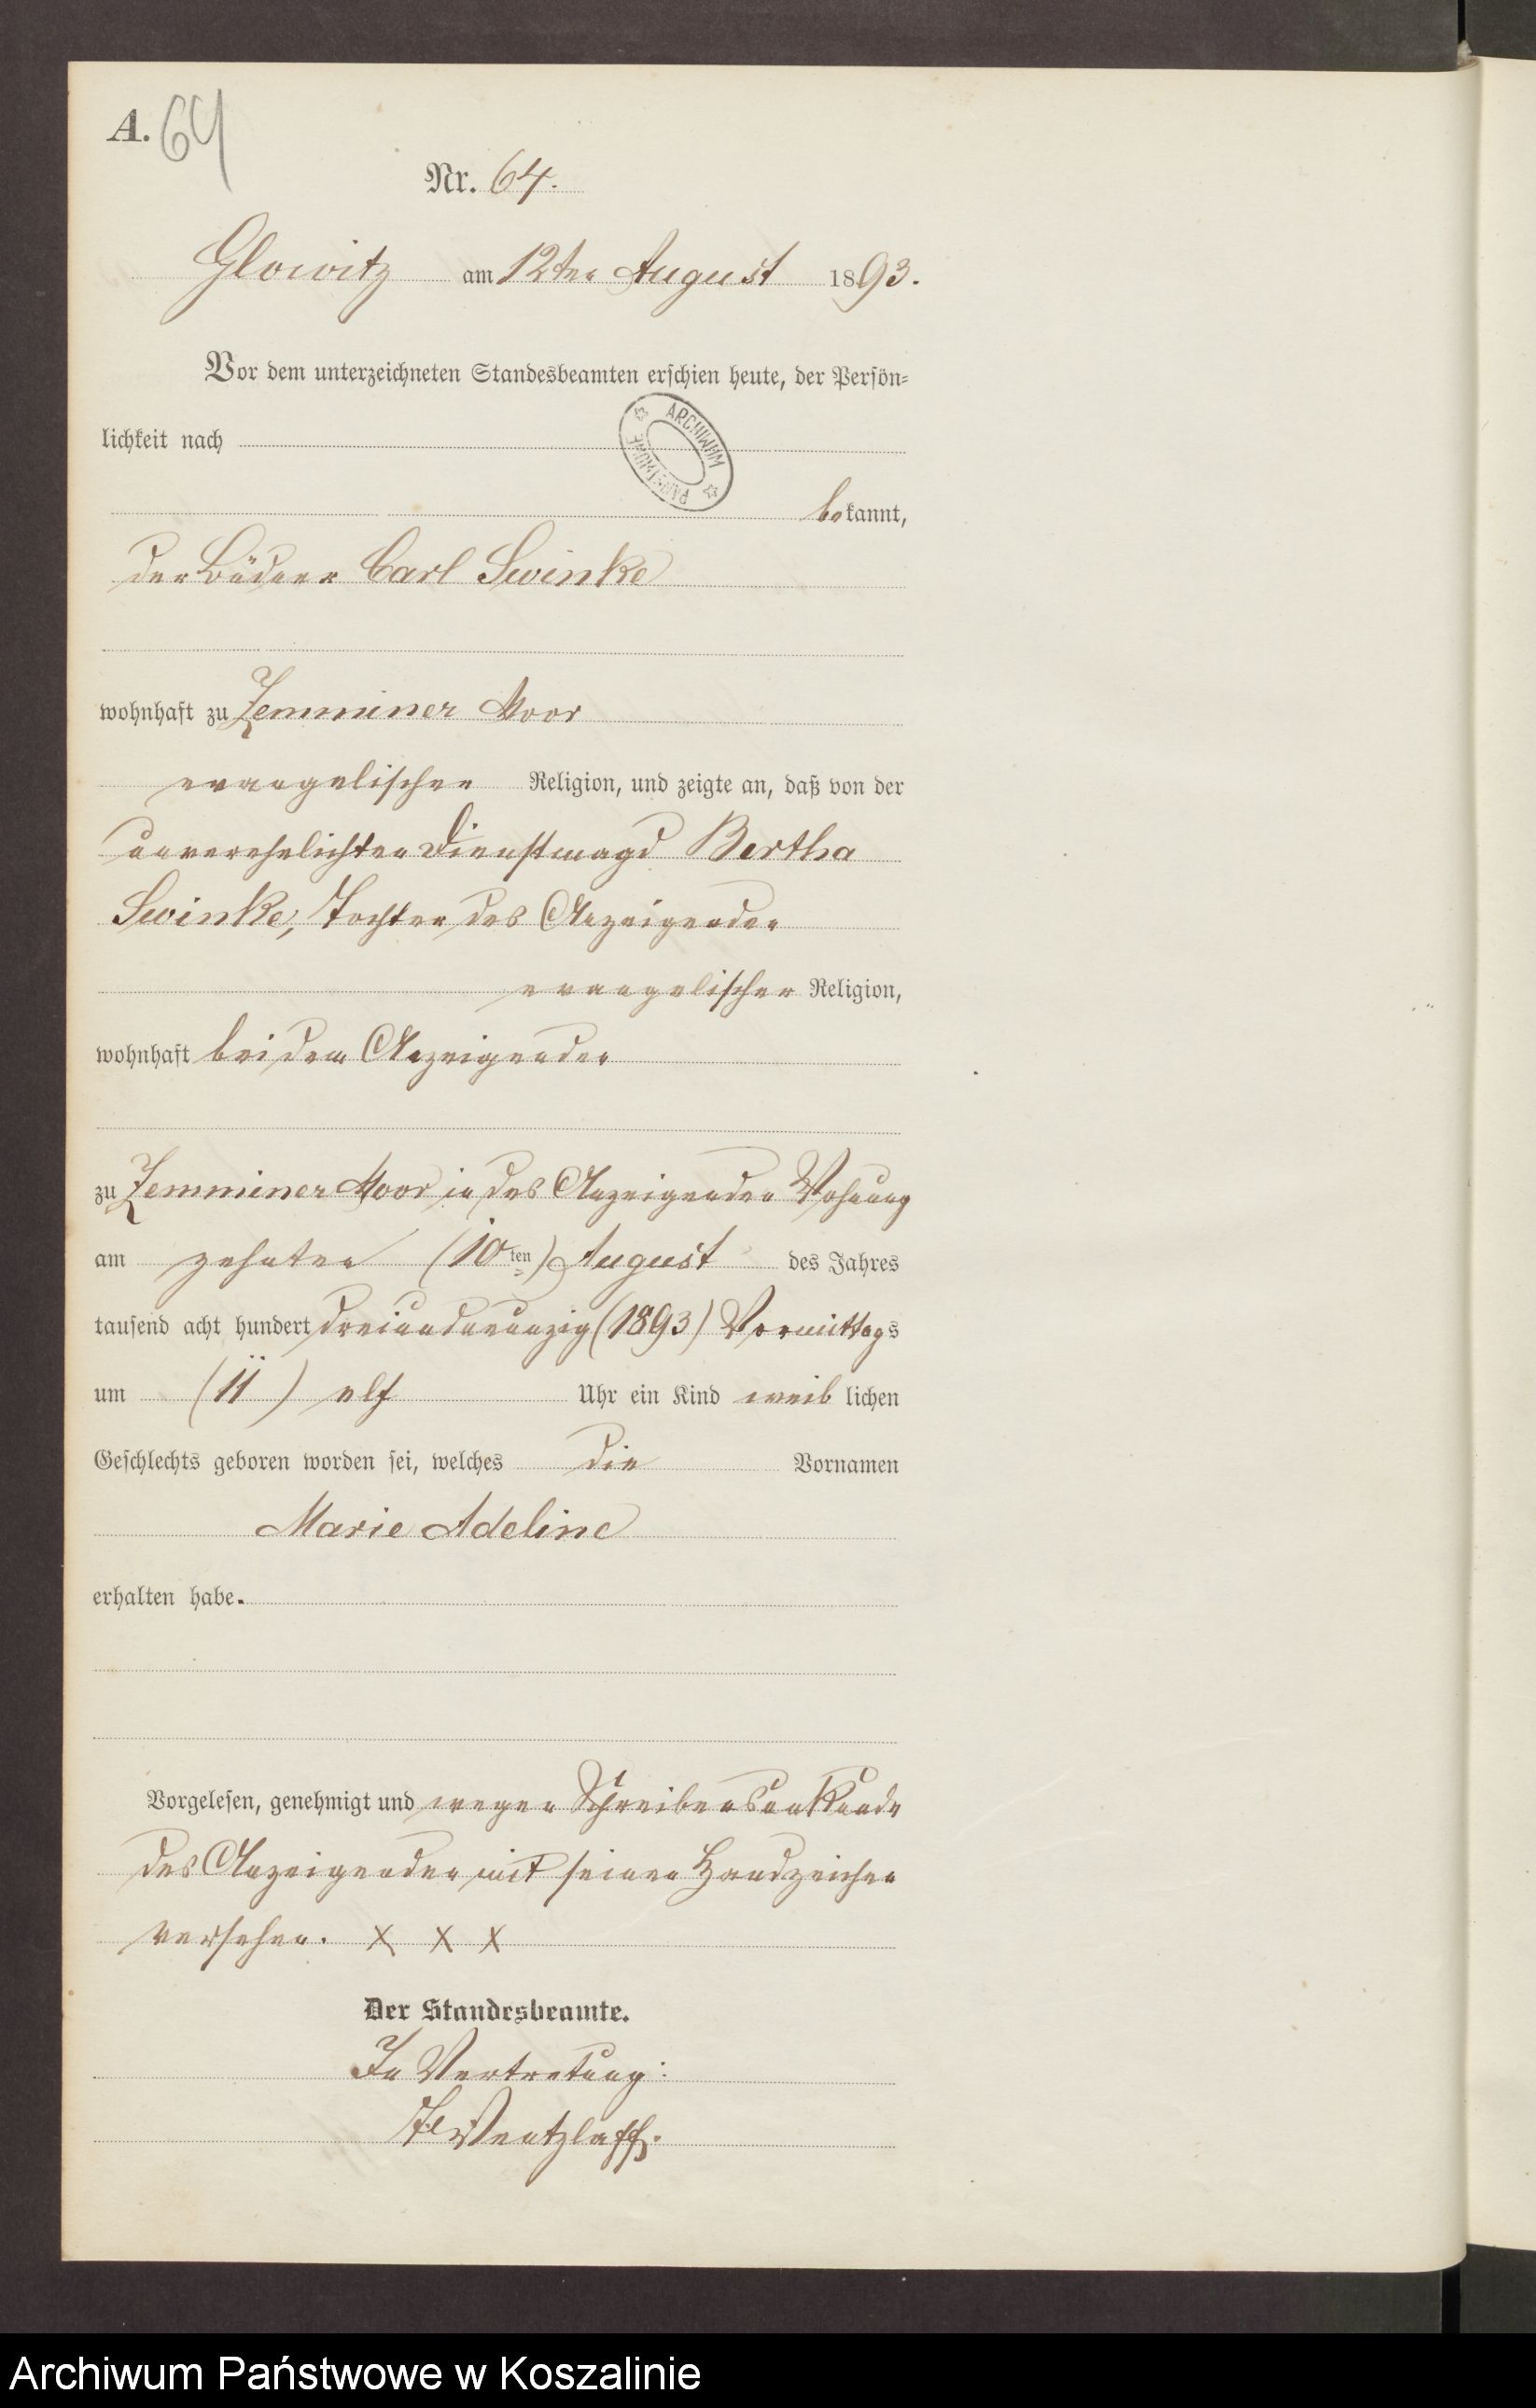 A. 64
Nr. 64.
Glowitz am 12ten August 1893.
Vor dem unterzeichneten Standesbeamten erschien heute, der Persön-
lichkeit nach
ARCHIWUM
PAŃSTWOWE
bekannt,
der Büdner Carl Swinke
wohnhaft zu Zemminer Moor
evangelischen Religion, und zeigte an, daß von der
unverehelichten Dienstmagd Bertha
Swinke, Tochter des Anzeigenden
evangelischer Religion,
wohnhaft bei dem Anzeigenden
zu Zemminer Moor in des Anzeigenden Wohnung
am zehnten (10ten) August des Jahres
tausend acht hundert dreiundneunzig (1893) Vormittags
um (11) elf Uhr ein Kind weiblichen
Geschlechts geboren worden sei, welches die Vornamen
Marie Adeline
erhalten habe.
Vorgelesen, genehmigt und wegen Schreibensunkunde
des Anzeigenden mit seinen Handzeichen
versehen. X X X
Der Standesbeamte.
In Vertretung:
Wentzlaff.
Archiwum Państwowe w Koszalinie